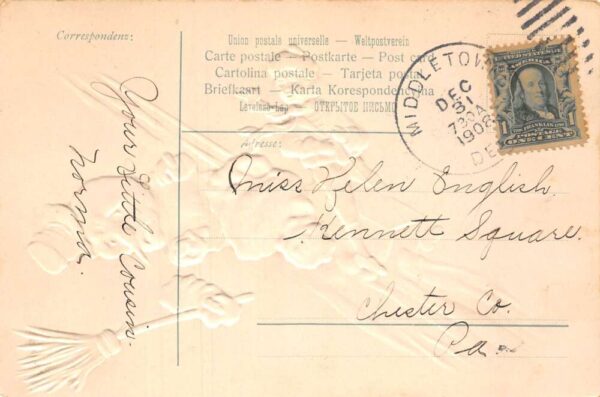 Correspondenz:
Union postale universelle — Weltpostverein
Carte postale — Postkarte — Post card
Cartolina postale — Tarjeta postal
Briefkaart — Karta Korespondencyjna
Levelező-Lap — ОТКРЫТОЕ ПИСЬМО
Adresse:
MIDDLETOWN
DEC
31
730A
1908
DEL
UNITED STATES OF AMERICA
1 FRANKLIN 1
POSTAGE
ONE CENT
Miss Helen English
Kennett Square.
Chester Co.
Pa.
Your Little Cousin.
Norma.